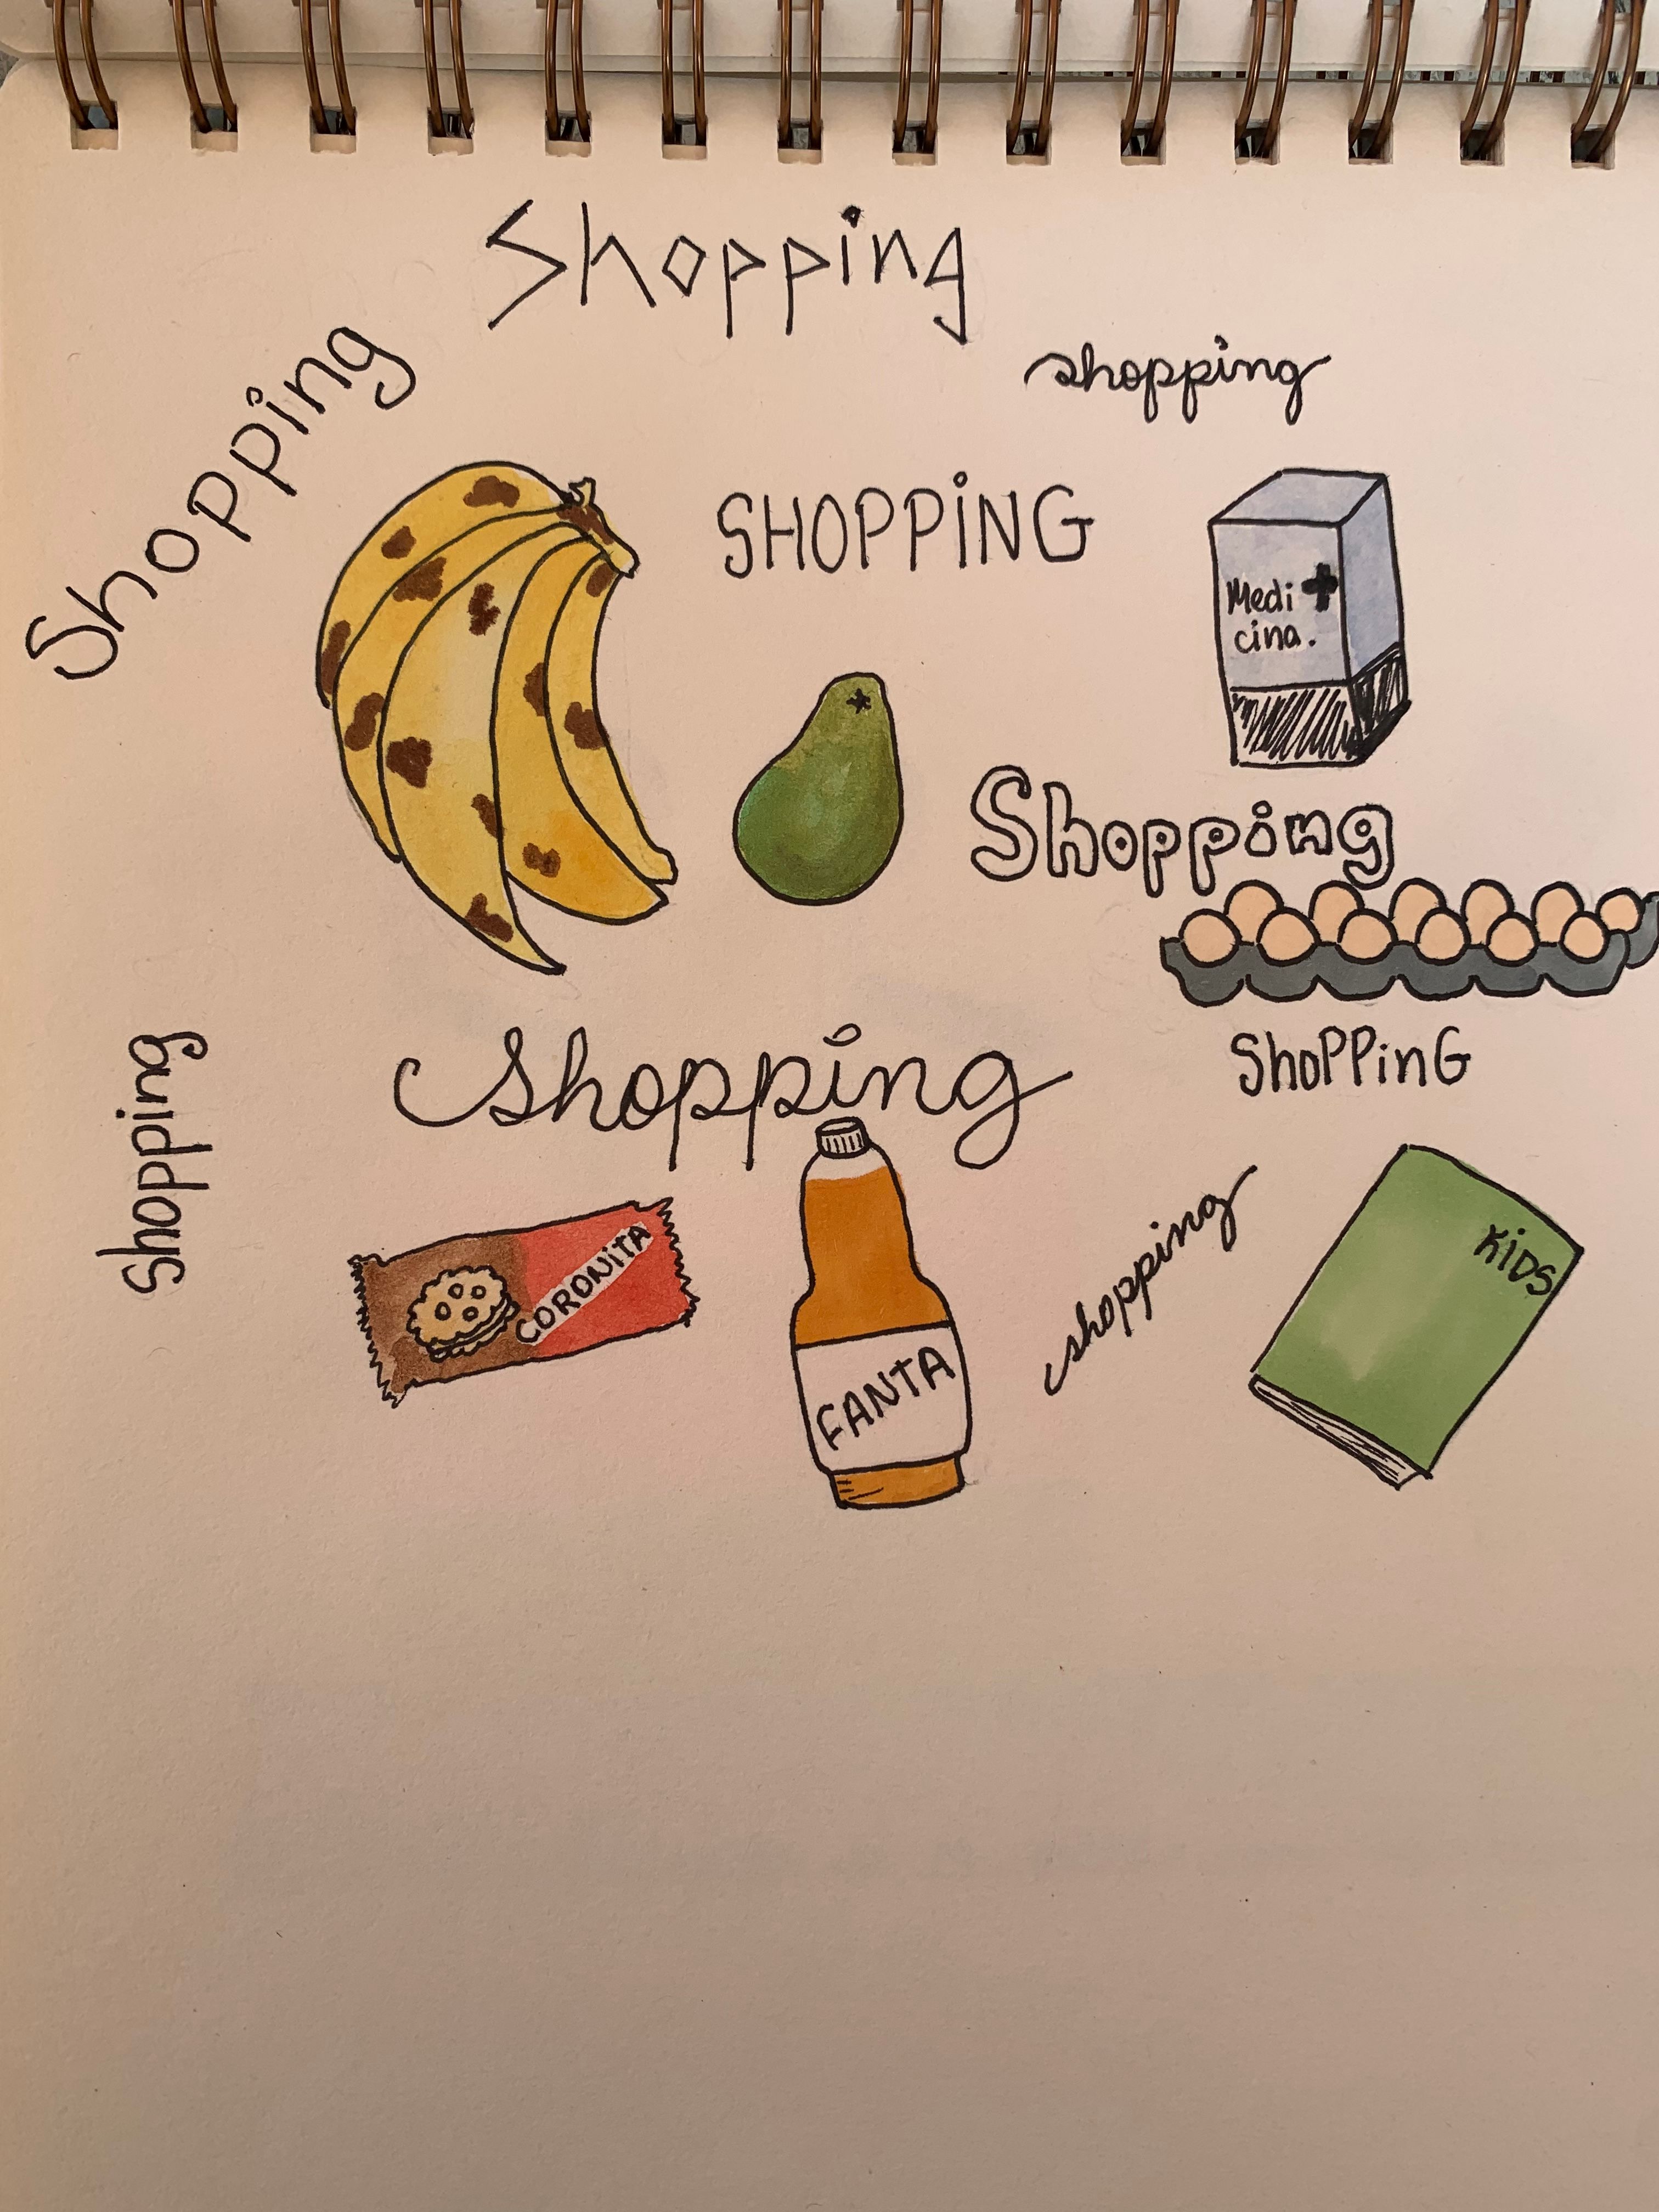 Shopping
Shopping
shopping
SHOPPiNG
Medi
cina.
Shopping
Shopping
shopping
ShoPPinG
CORONiTA
FANTA
shopping
KiDS